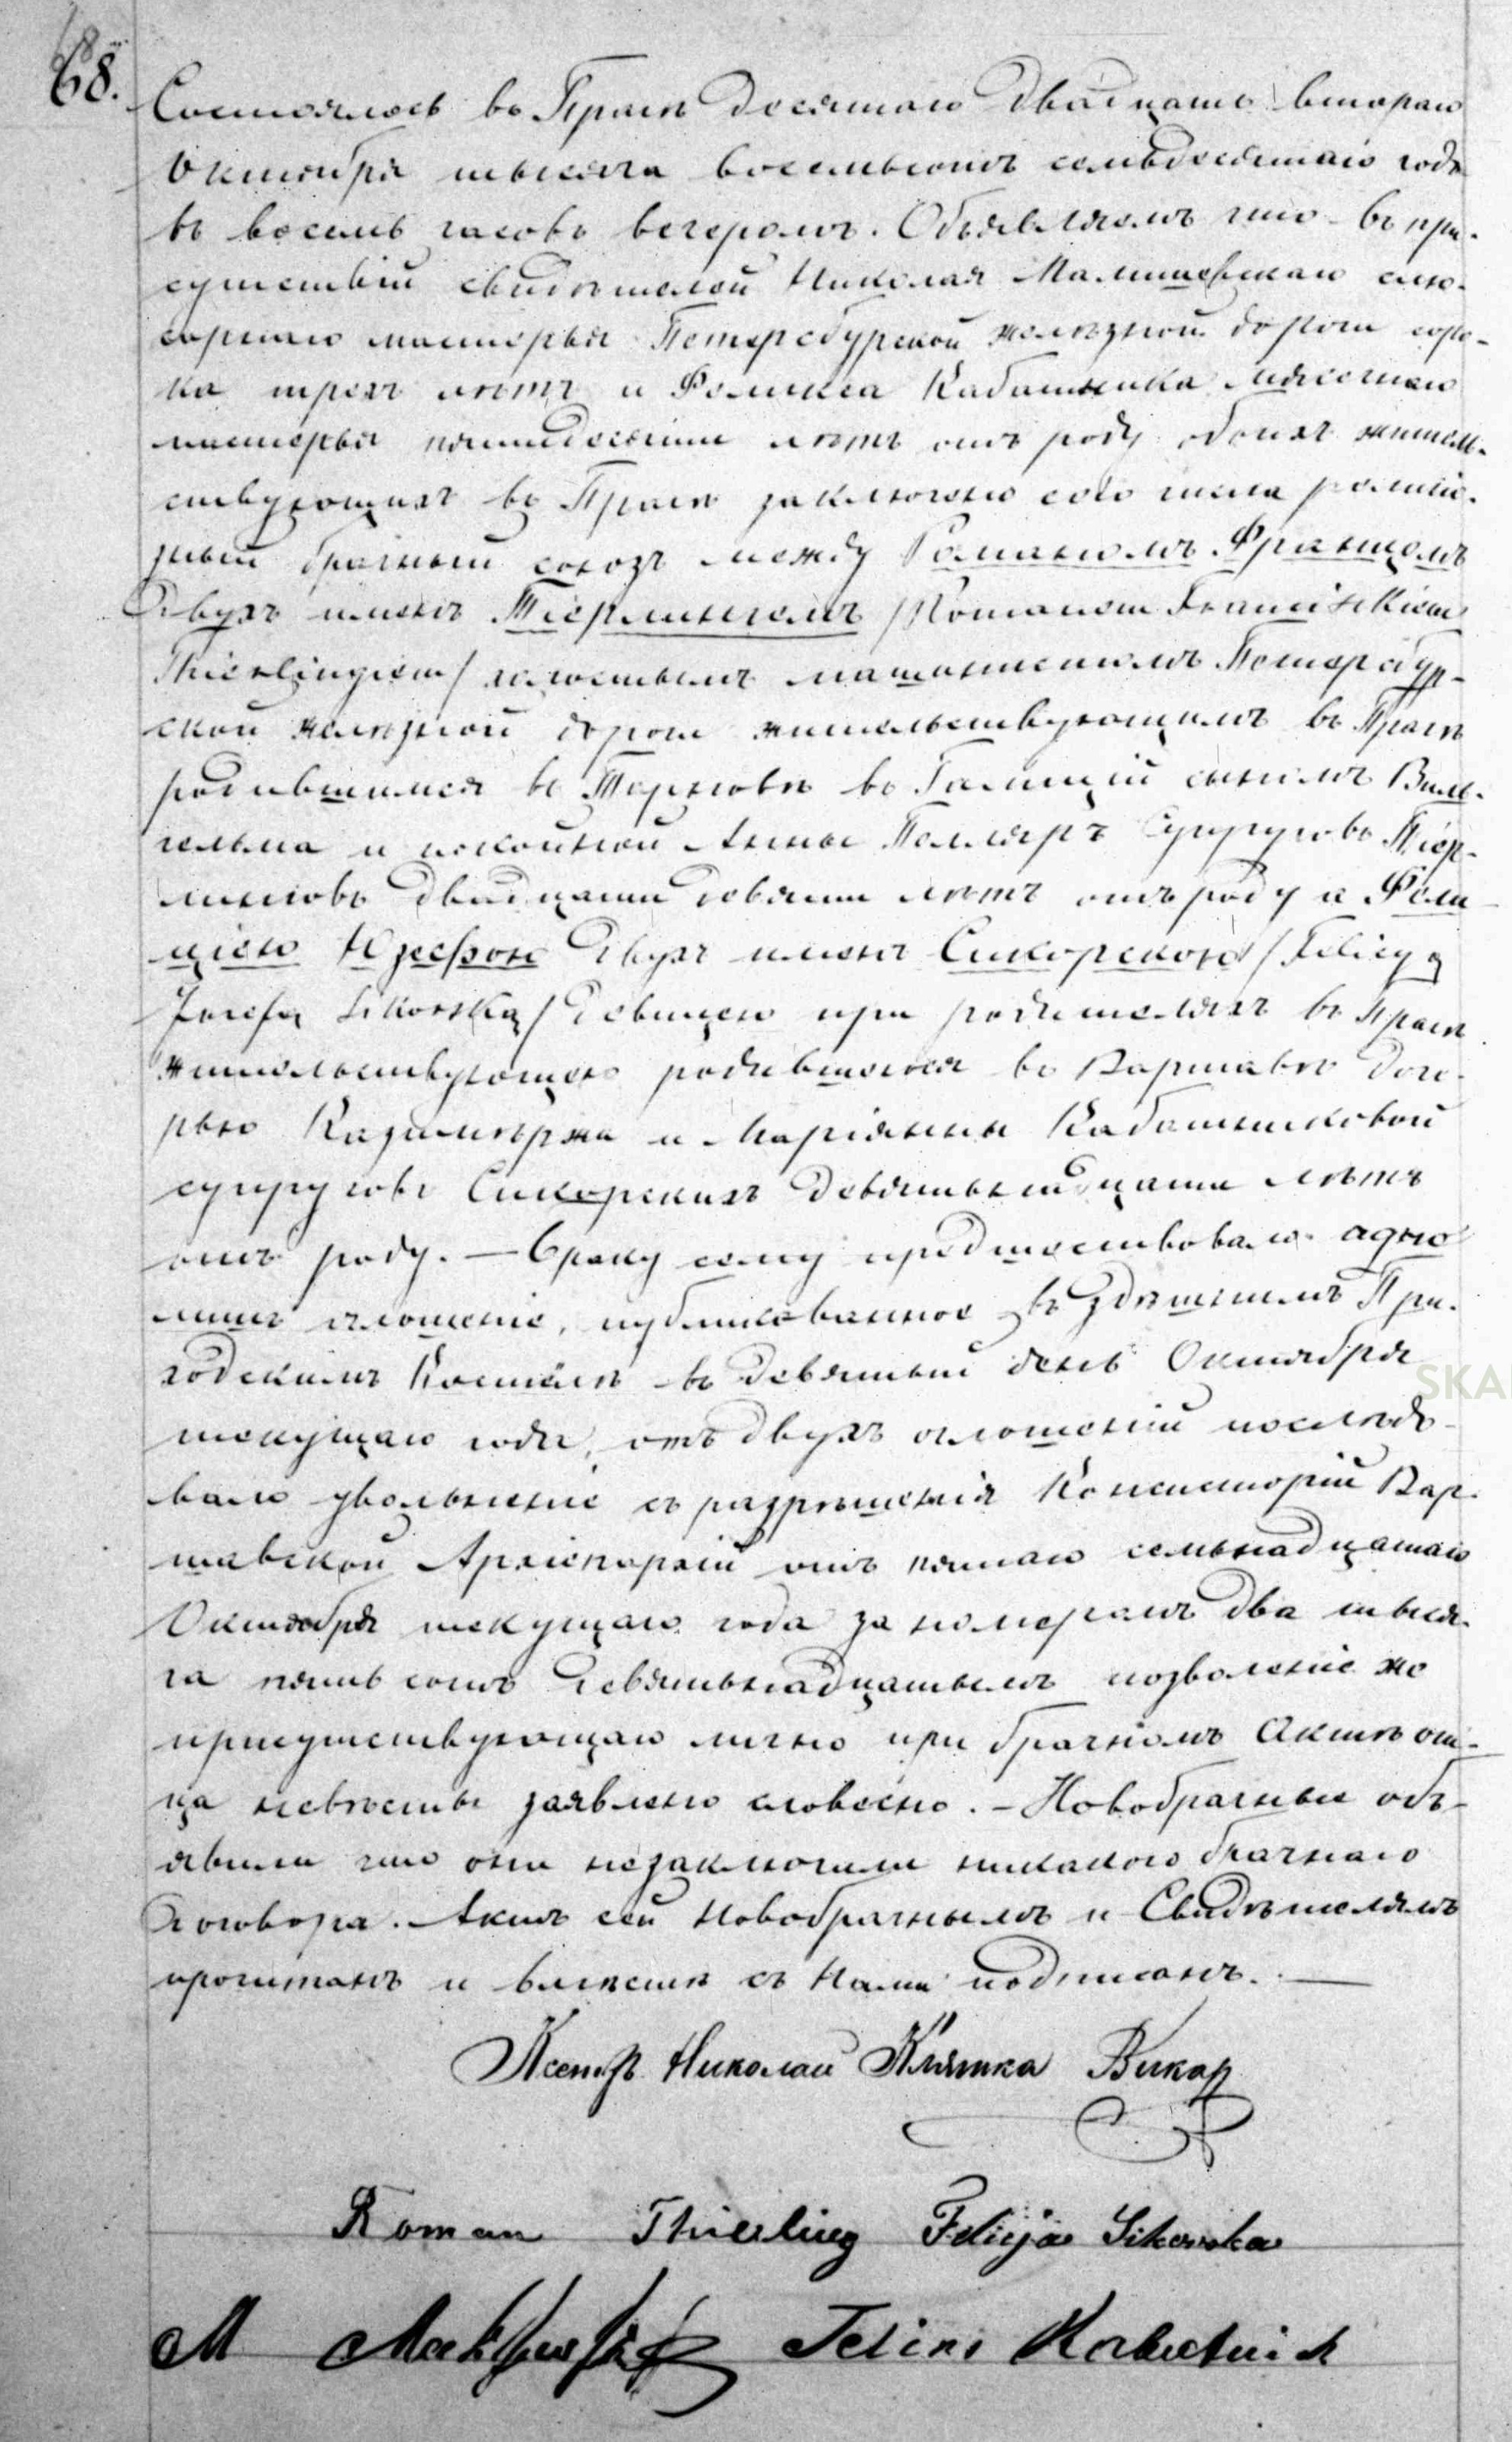 68.
Состоялось въ Прагѣ десятаго двадцать втораго
Октября тысяча восемьсотъ семьдесятаго года
въ восемь часовъ вечеромъ. Объявляемъ что въ при-
сутствіи свидѣтелей Николая Малишевскаго слю-
сарнаго мастерья Петерсбурской желѣзной дороги соро-
ка трехъ лѣтъ и Феликса Кабатника мясснаго
мастерья пятидесяти лѣтъ отъ роду обоихъ житель-
ствующихъ въ Прагѣ заключено сего числа религіо-
зный брачный союзъ между Романомъ Францомъ
двухъ именъ Тіерлингомъ /Romanem Franciszkiem
Thierlingiem/ холостымъ машинистомъ Петерсбур-
ской желѣзной дороги жительствующимъ въ Прагѣ
родившимся въ Тарновѣ въ Галиціи сыномъ Виль-
гельма и покойной Анны Пелляръ Супруговъ Тіер-
линговъ двадцати девяти лѣтъ отъ роду и Фели-
ціею Юзефою двухъ именъ Сикорскою /Felicyą
Józefą Sikorską/ девицею при родителяхъ въ Прагѣ
жительствующею родившеюся въ Варшавѣ доче-
рью Казимѣржа и Маріянны Кабатниковой
супруговъ Сикорскихъ девятьнадцати лѣтъ
отъ роду. — Браку сему предшествовало одно
лишь оглошеніе, публикованное въ здѣшнемъ При-
ходскимъ Костелѣ въ девятый день Октября
текущаго года, отъ двухъ оглошеній послѣдо-
вало увольненіе съ разрѣшенія Консисторіи Вар-
шавской Архіепархіи отъ пятаго семьнадцатаго
Октября текущаго года за номеромъ два тыся-
ча пять сотъ девятьнадцатымъ позволеніе же
присутствующаго лично при брачномъ Актѣ от-
ца невѣсты заявлено словесно. — Новобрачные объ-
явили что они незаключили никакого брачнаго
договора. Актъ сей Новобрачнымъ и Свидѣтелямъ
прочитанъ и вмѣстѣ съ Нами подписанъ. —
Ксендзъ Николай Клятка Викар
Roman Thierling Felicja Sikorska
M Felix Kabatnik